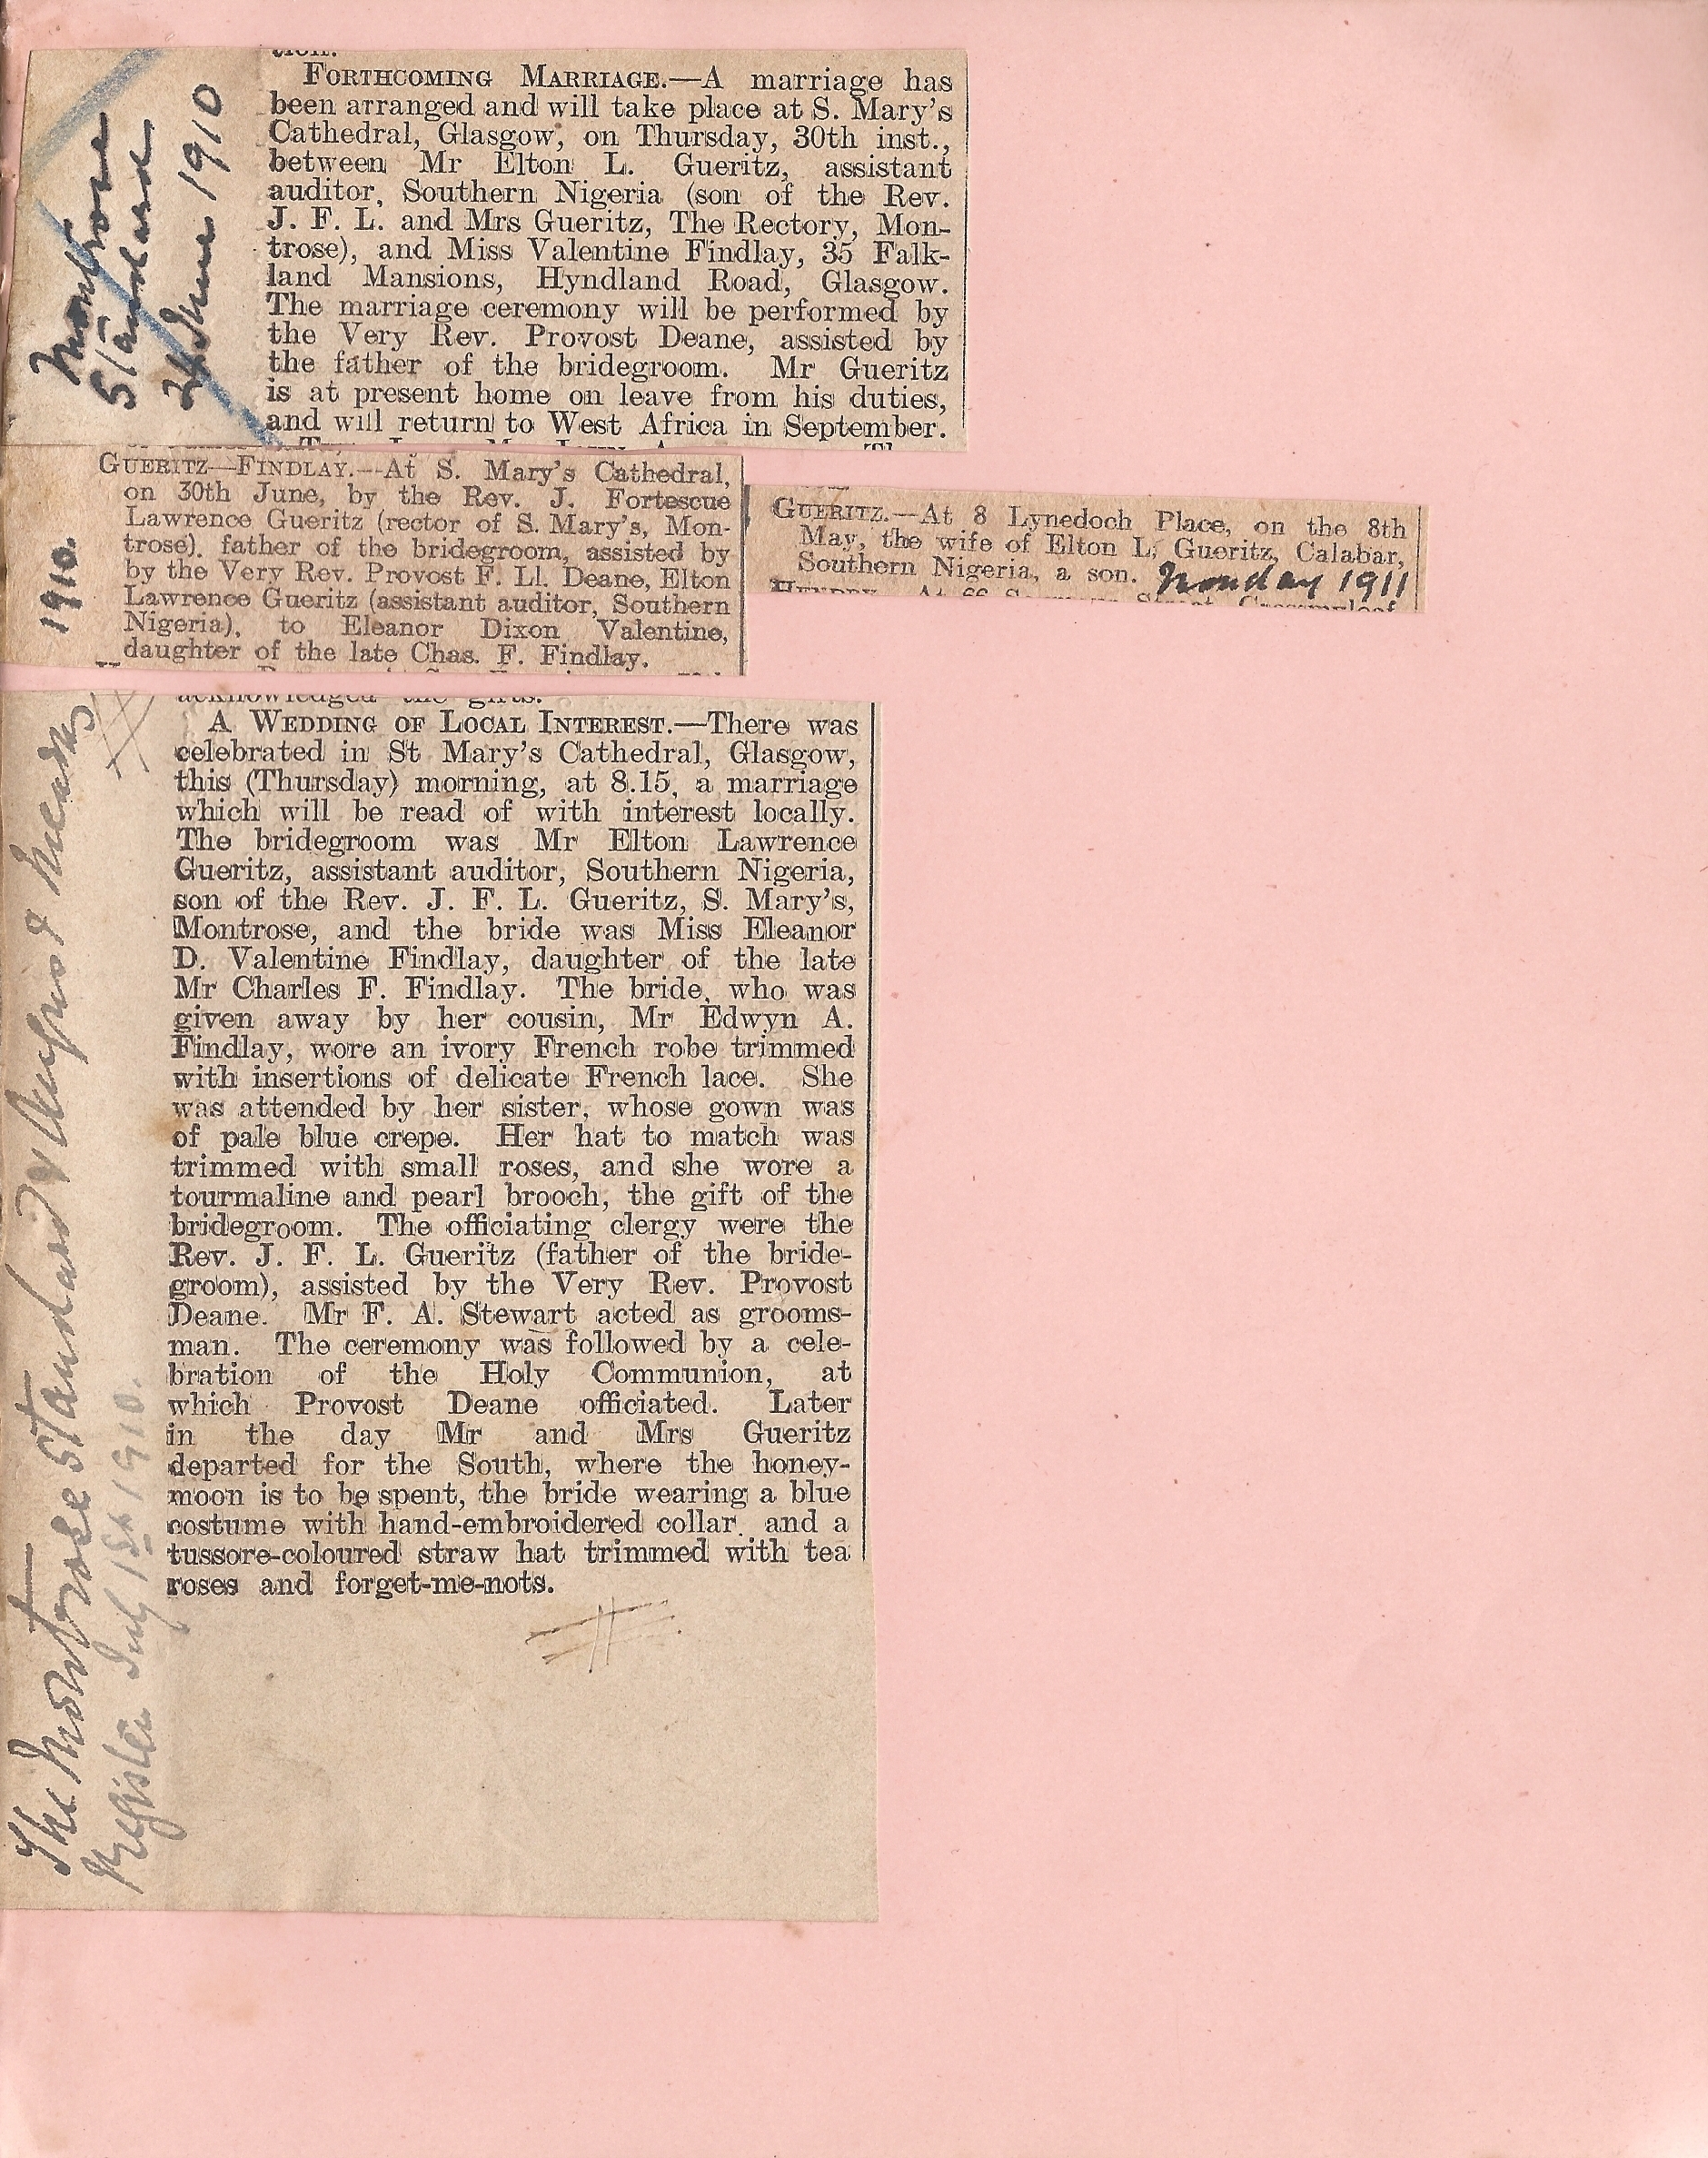 Montrose
Standard
24 June 1910
FORTHCOMING MARRIAGE.—A marriage has
been arranged and will take place at S. Mary's
Cathedral, Glasgow, on Thursday, 30th inst.,
between Mr Elton L. Gueritz, assistant
auditor, Southern Nigeria (son of the Rev.
J. F. L. and Mrs Gueritz, The Rectory, Mon-
trose), and Miss Valentine Findlay, 35 Falk-
land Mansions, Hyndland Road, Glasgow.
The marriage ceremony will be performed by
the Very Rev. Provost Deane, assisted by
the father of the bridegroom. Mr Gueritz
is at present home on leave from his duties,
and will return to West Africa in September.
1910.
GUERITZ—FINDLAY.—At S. Mary's Cathedral,
on 30th June, by the Rev. J. Fortescue
Lawrence Gueritz (rector of S. Mary's, Mon-
trose), father of the bridegroom, assisted by
by the Very Rev. Provost F. Ll. Deane, Elton
Lawrence Gueritz (assistant auditor, Southern
Nigeria), to Eleanor Dixon Valentine,
daughter of the late Chas. F. Findlay.
GUERITZ.—At 8 Lynedoch Place, on the 8th
May, the wife of Elton L. Gueritz, Calabar,
Southern Nigeria, a son. Monday 1911
The Montrose Standard & Angus & Mearns
Register July 1st 1910.
acknowledged the gifts.
A WEDDING OF LOCAL INTEREST.—There was
celebrated in St Mary's Cathedral, Glasgow,
this (Thursday) morning, at 8.15, a marriage
which will be read of with interest locally.
The bridegroom was Mr Elton Lawrence
Gueritz, assistant auditor, Southern Nigeria,
son of the Rev. J. F. L. Gueritz, S. Mary's,
Montrose, and the bride was Miss Eleanor
D. Valentine Findlay, daughter of the late
Mr Charles F. Findlay. The bride, who was
given away by her cousin, Mr Edwyn A.
Findlay, wore an ivory French robe trimmed
with insertions of delicate French lace. She
was attended by her sister, whose gown was
of pale blue crepe. Her hat to match was
trimmed with small roses, and she wore a
tourmaline and pearl brooch, the gift of the
bridegroom. The officiating clergy were the
Rev. J. F. L. Gueritz (father of the bride-
groom), assisted by the Very Rev. Provost
Deane. Mr F. A. Stewart acted as grooms-
man. The ceremony was followed by a cele-
bration of the Holy Communion, at
which Provost Deane officiated. Later
in the day Mr and Mrs Gueritz
departed for the South, where the honey-
moon is to be spent, the bride wearing a blue
costume with hand-embroidered collar, and a
tussore-coloured straw hat trimmed with tea
roses and forget-me-nots.